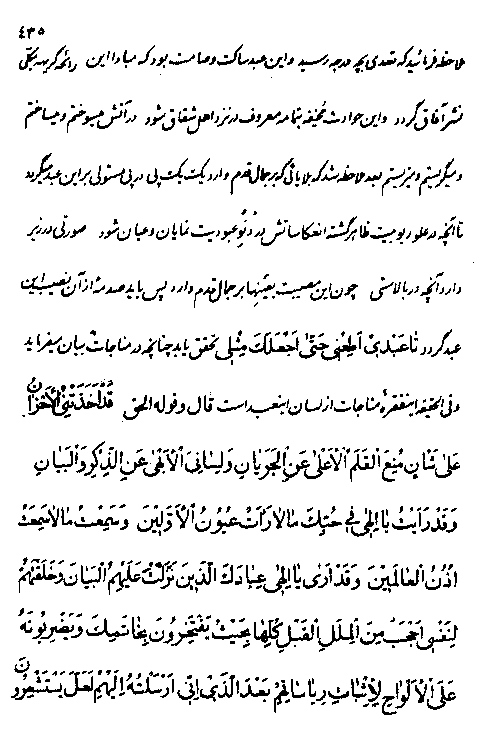 ٤٣٥
ملاحظه فرمائید که تعدی بچه درجه رسید و این عبد ساکت و صامت بود که مبادا این رائحه کریهه بکلی
نشر آفاق گردد و این حوادث مخیفه بتمامه معروف در نزد اهل شقاق شود در آتش میسوختم و میساختم
و میگریستم و میزیستم بعد ملاحظه شد که بلایائی که بر جمال قدم وارد یک یک پی در پی مستولی بر این عبد میگردد
تا آنچه در علو ربوبیت ظاهر گشته انعکاساتش در دنو عبودیت نمایان و عیان شود صورتی در زیر
دارد آنچه در بالاستی چون این مصیبت بعینها بر جمال قدم وارد پس باید صدمه از آن نصیب این
عبد گردد تا عَبْدی اَطِعْنی حَتّیٰ اَجْعَلَکَ مِثْلی تحقق یابد چنانچه در مناجات بیان میفرماید
و فی الحقیقه اینفقره مناجات از لسان اینعبد است قال و قوله الحق قَدْ اَخَذَتْنِی الْاَحْزانُ
عَلیٰ شَأنٍ مُنِعَ الْقَلَمُ الْاَعْلیٰ عَنِ الْجَرَیانِ وَ لِسانِیَ الْاَبْهیٰ عَنِ الذِّکْرِ وَ الْبَیانِ
وَ قَدْ رَاَیْتُ یا اِلهی فی حُبِّکَ ما لا رَأَتْ عُیُونُ الْاَوَّلینَ وَ سَمِعْتُ ما لا سَمِعَتْ
اُذُنُ الْعالَمینَ وَ قَدْ اَریٰ یا اِلهی عِبادَکَ الَّذینَ نَزَّلْتَ عَلَیْهِمُ الْبَیانَ وَ خَلَقْتَهُمْ
لِنَفْسی اَحْجَبَ مِنَ الْمِلَلِ الْقَبْلِ کُلِّها بِحَیْثُ یَفْتَخِرُونَ بِخاتَمِکَ وَ یَضْرِبُونَهُ
عَلَی الْاَلْواحِ لِاِثْباتِ رِیاساتِهِمْ بَعْدَ الَّذی اِنّی اَرْسَلْتُهُ اِلَیْهِمْ لَعَلَّ یَسْتَشْعِرُونَ